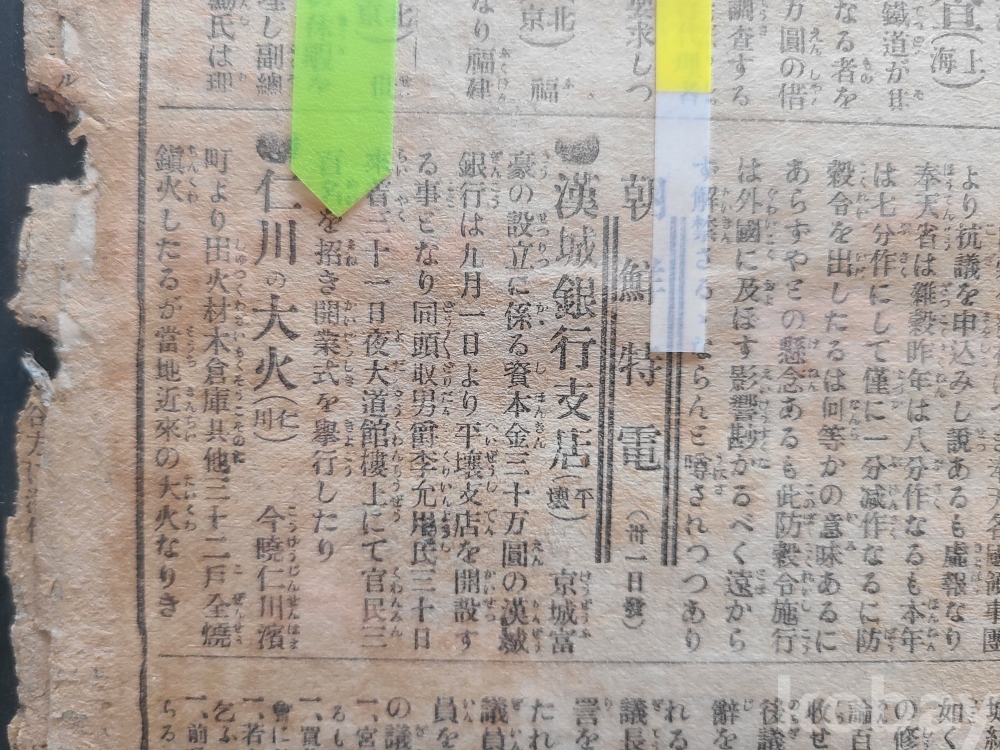 上海
鐵道が
なる者を
万圓の借
調査する
求しつ
北京
福
なり 福建
理し副總
氏は理
より抗議を申込みし説あるも虚報なり
奉天省は雜穀昨年は八分作なるも本年
は七分作にして僅に一分減作なるに防
穀令を出したるは何等かの意味あるに
あらずやとの懸念あるも此防穀令施行
は外國に及ぼす影響尠かるべく遠から
ず解禁さるゝならんと噂されつつあり
朝鮮特電（卅一日發）
●漢城銀行支店（平壤） 京城富
豪の設立に係る資本金三十万圓の漢城
銀行は九月一日より平壤支店を開設す
る事となり同頭取男爵李允用氏三十日
來着三十一日夜大道館樓上にて官民三
百名を招き開業式を擧行したり
●仁川の大火（仁川） 今曉仁川濱
町より出火材木倉庫其他三十二戸全燒
鎭火したるが當地近來の大火なりき
如く
の修
論百
收せ
後議
辭を
れる
議長
罟を
たれ
議員
員を
の議
一、宮
一、買
一、若
乞ふ
一、前